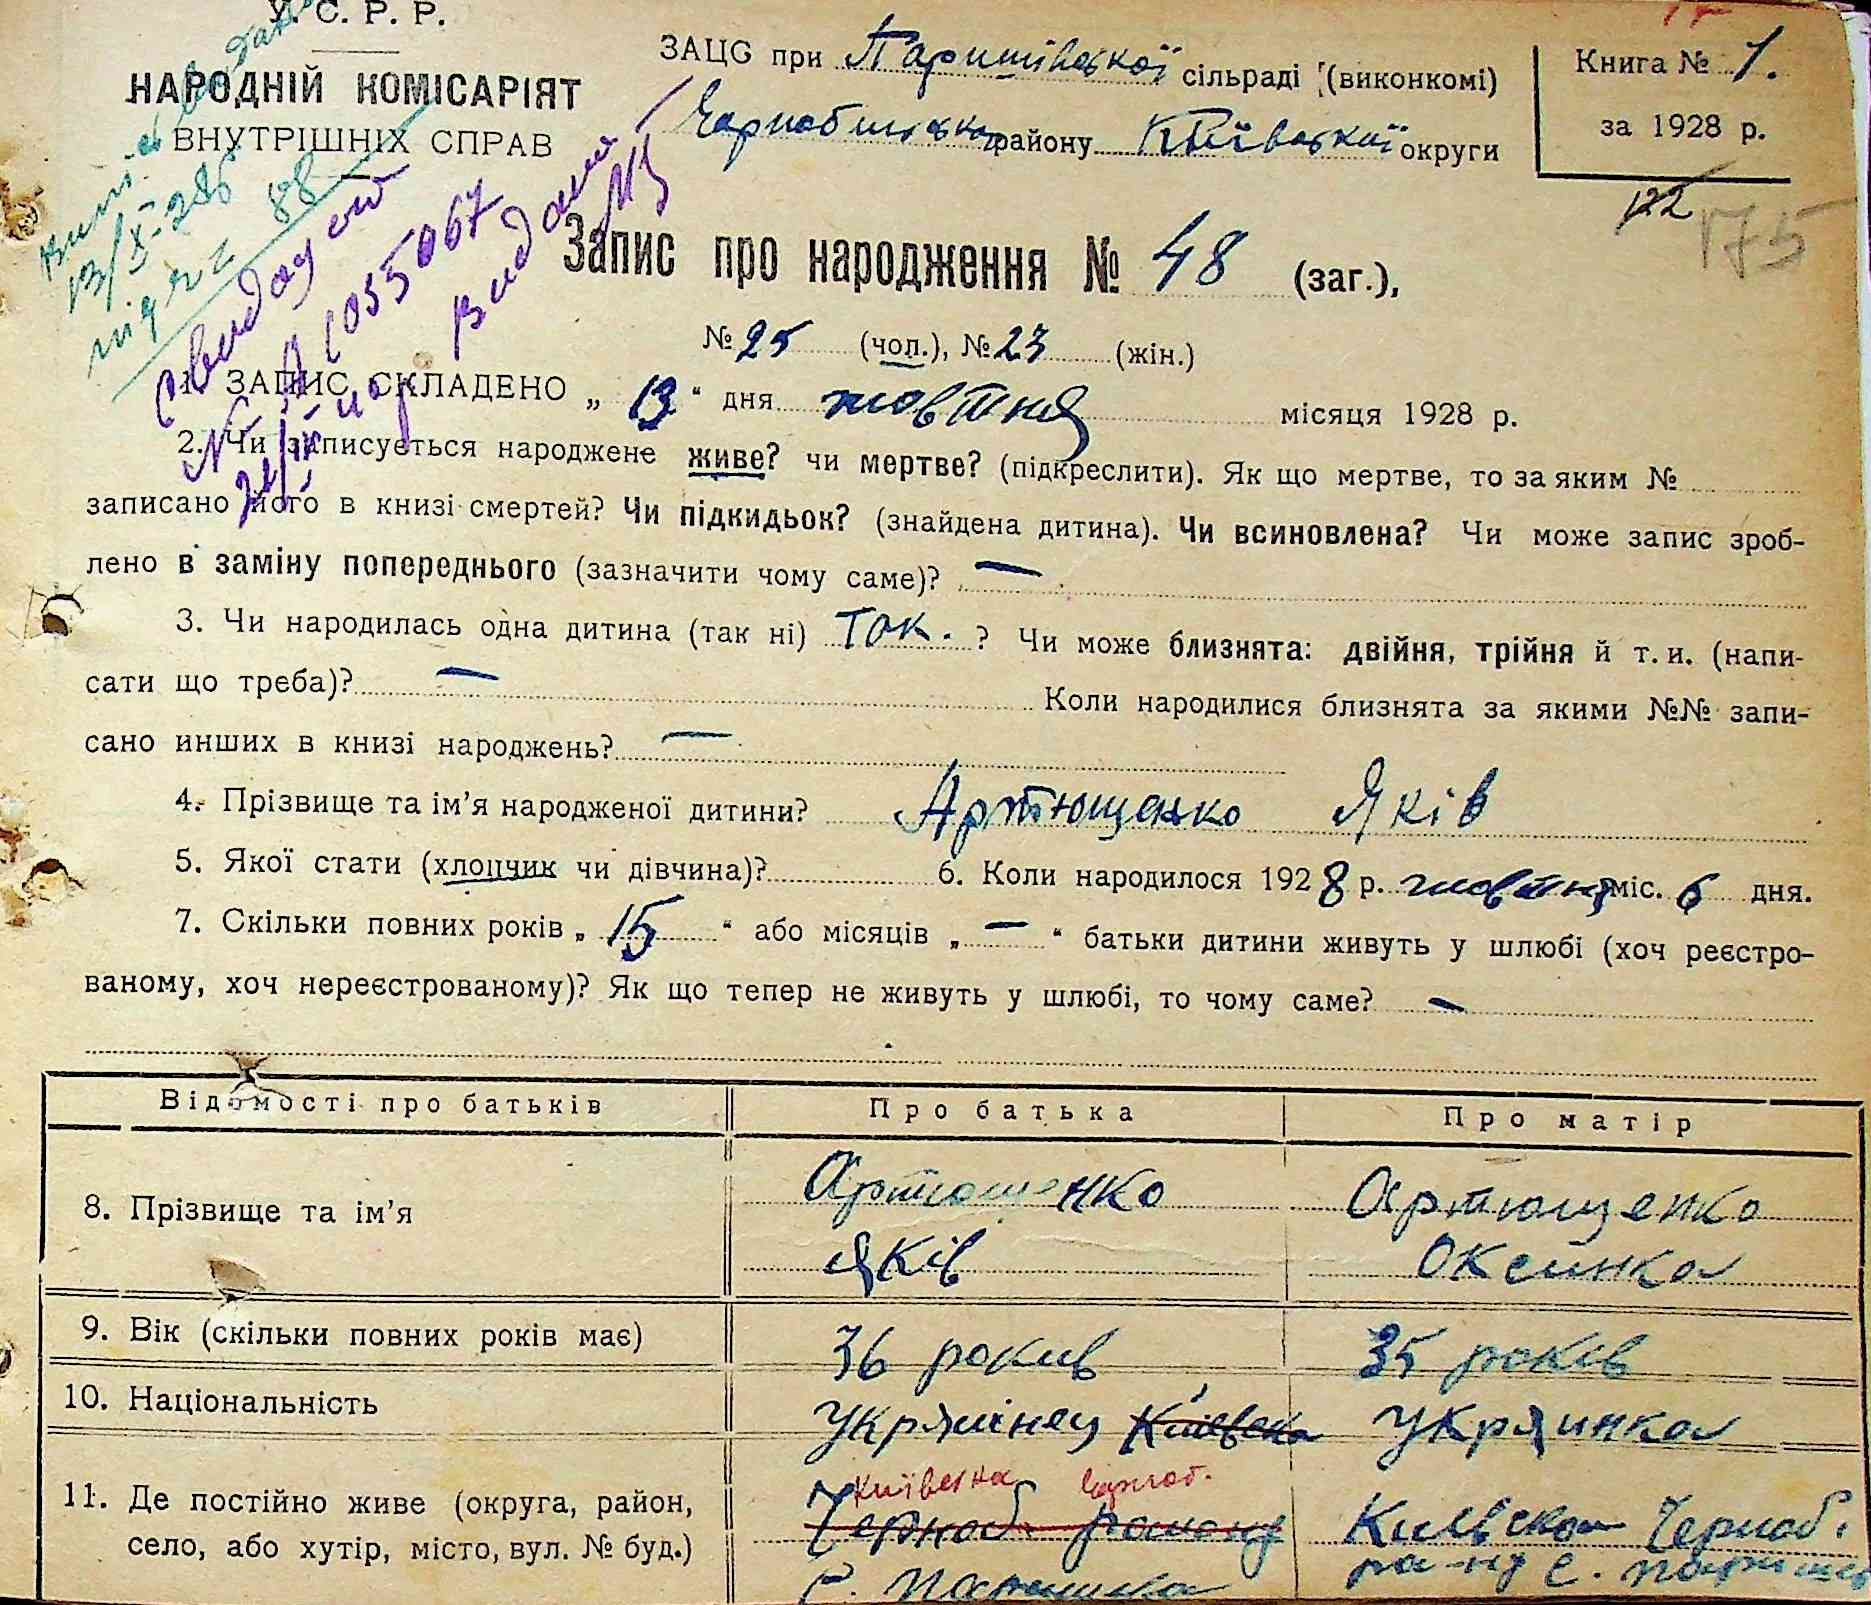 У. С. Р. Р.
НАРОДНІЙ КОМІСАРІЯТ
ВНУТРІШНІХ СПРАВ
ЗАЦС при Паришівської сільраді (виконкомі)
Чорнобильсько району Київської округи
Книга № 1.
за 1928 р.
122
175
13/X-28
свидоцтво
055067
видании
Запис про народження № 48 (заг.),
№ 25 (чол.), № 23 (жін.)
1. ЗАПИС СКЛАДЕНО „ 13 “ дня жовтня місяця 1928 р.
2. Чи записується народжене живе? чи мертве? (підкреслити). Як що мертве, то за яким №
записано його в книзі смертей? Чи підкидьок? (знайдена дитина). Чи всиновлена? Чи може запис зроб-
лено в заміну попереднього (зазначити чому саме)? —
3. Чи народилась одна дитина (так ні) Так. ? Чи може близнята: двійня, трійня й т. и. (напи-
сати що треба)? — Коли народилися близнята за якими №№ запи-
сано инших в книзі народжень? —
4. Прізвище та ім’я народженої дитини? Артющенко Яків
5. Якої стати (хлопчик чи дівчина)? 6. Коли народилося 1928 р. жовтня міс. 6 дня.
7. Скільки повних років „ 15 “ або місяців „ — “ батьки дитини живуть у шлюбі (хоч реєстро-
ваному, хоч нереєстрованому)? Як що тепер не живуть у шлюбі, то чому саме? —
Відомості про батьків Про батька Про матір
8. Прізвище та ім’я Артющенко Яків Артющенко Оксинка
9. Вік (скільки повних років має) 36 рокив 35 років
10. Національність Украінец Киевска Украинка
11. Де постійно живе (округа, район,
село, або хутір, місто, вул. № буд.)
Київська
Черноб. району
Киевскоа Черноб.
ра-ну с.